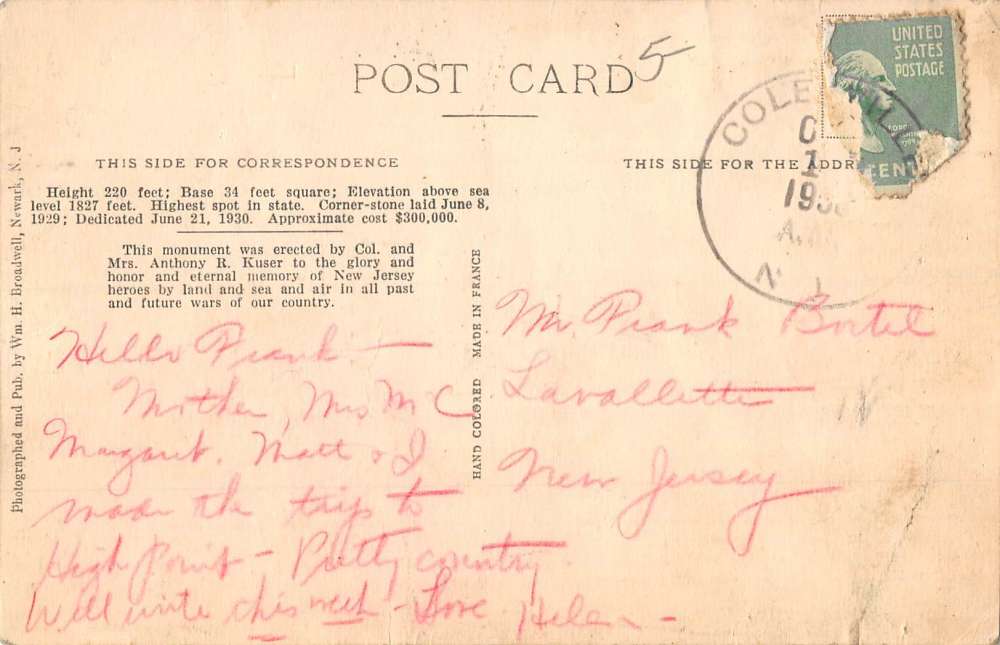 POST CARD
5
UNITED
STATES
POSTAGE
CENT
COLE
1
193
A.M.
N. J.
THIS SIDE FOR CORRESPONDENCE
THIS SIDE FOR THE ADDR
Height 220 feet; Base 34 feet square; Elevation above sea
level 1827 feet. Highest spot in state. Corner-stone laid June 8,
1929; Dedicated June 21, 1930. Approximate cost $300,000.
This monument was erected by Col. and
Mrs. Anthony R. Kuser to the glory and
honor and eternal memory of New Jersey
heroes by land and sea and air in all past
and future wars of our country.
Photographed and Pub. by Wm. H. Broadwell, Newark, N. J
HAND COLORED MADE IN FRANCE
Hello Frank —
Mother, Mrs Mc C
Margaret, Matt & I
made the trip to
High Point — Pretty country.
Will write this week — Love Helen —
Mr Frank Bortel
Lavallette
New Jersey